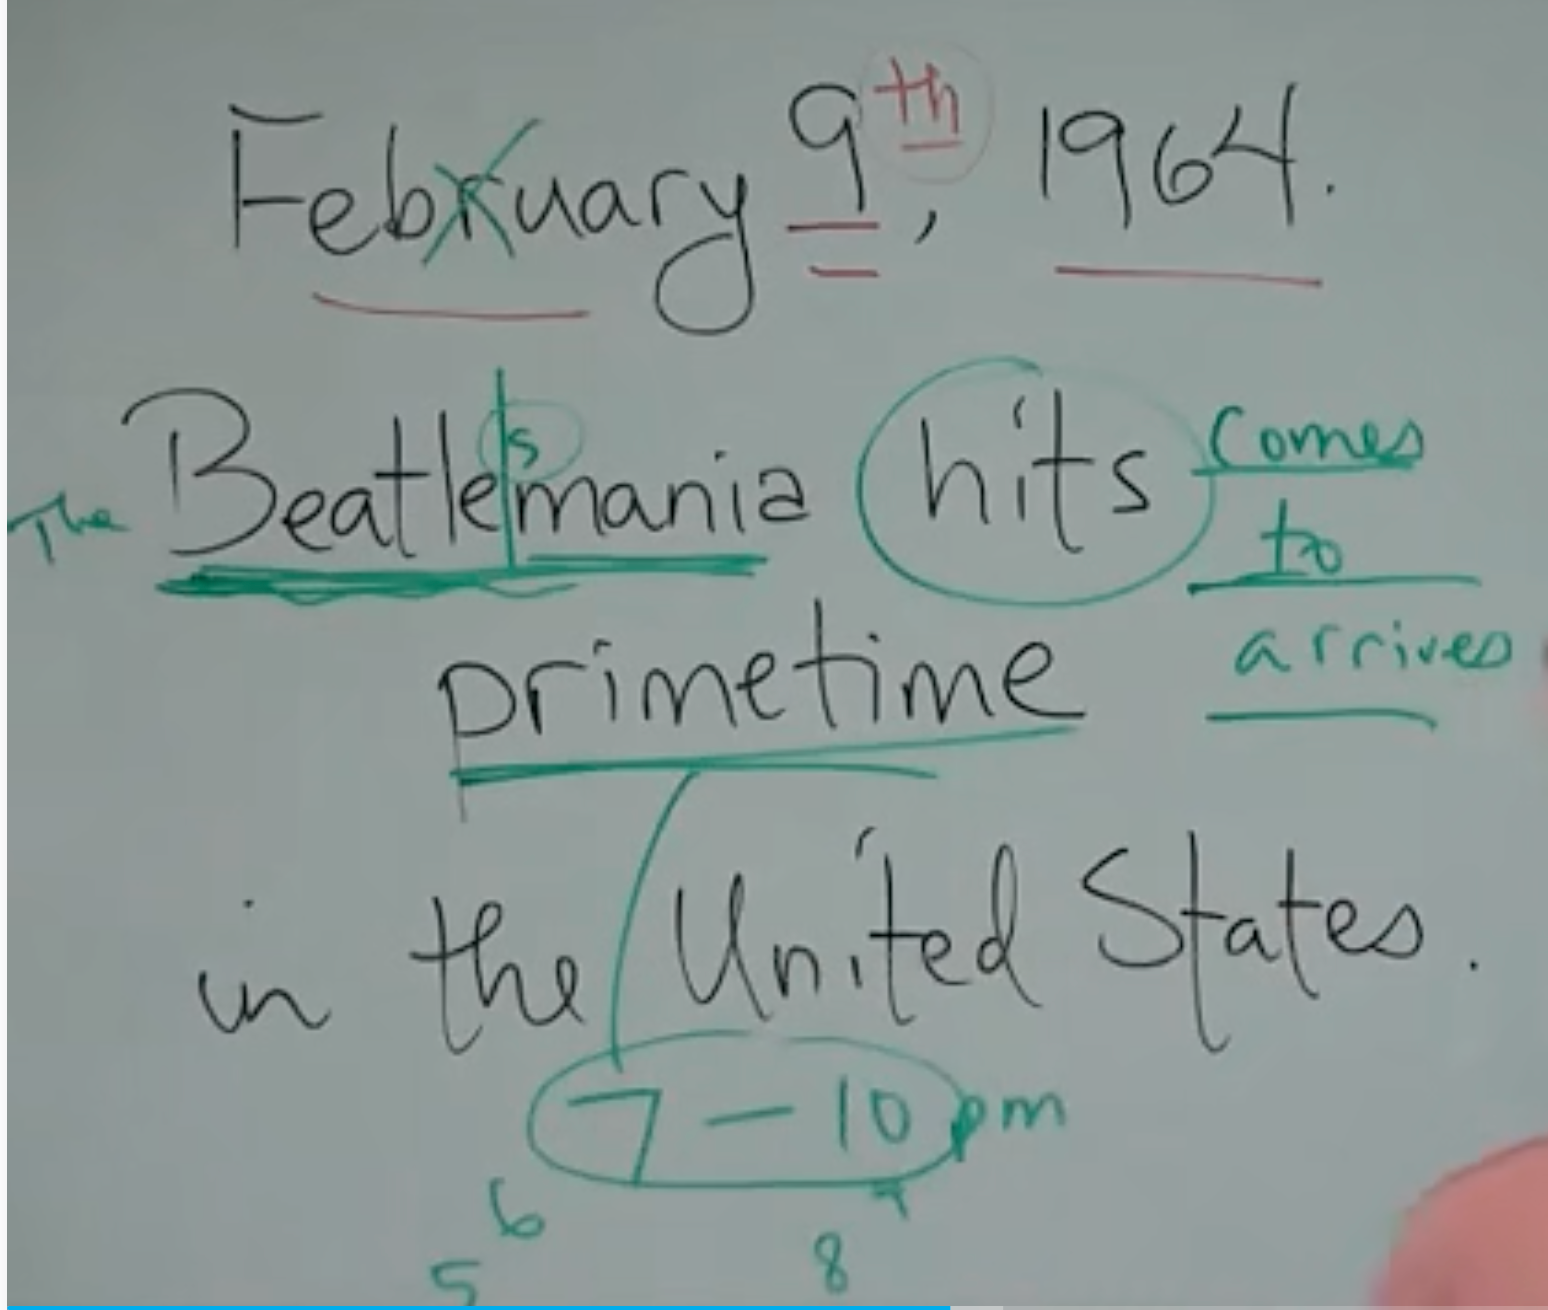 February 9th, 1964.
The Beatlesmania hits comes
to
arrives
primetime
in the United States.
7 – 10 pm
6
8
5